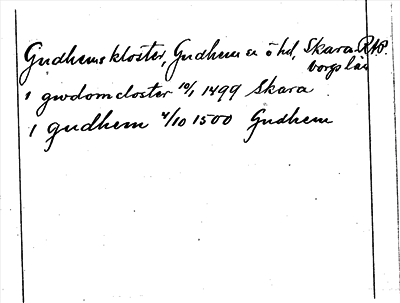 Gudhems kloster, Gudhems sn o hd, Skara- RAP.
borgs län
i gwdomcloster 10/1 1499 Skara
i gudhem 4/10 1500 Gudhem